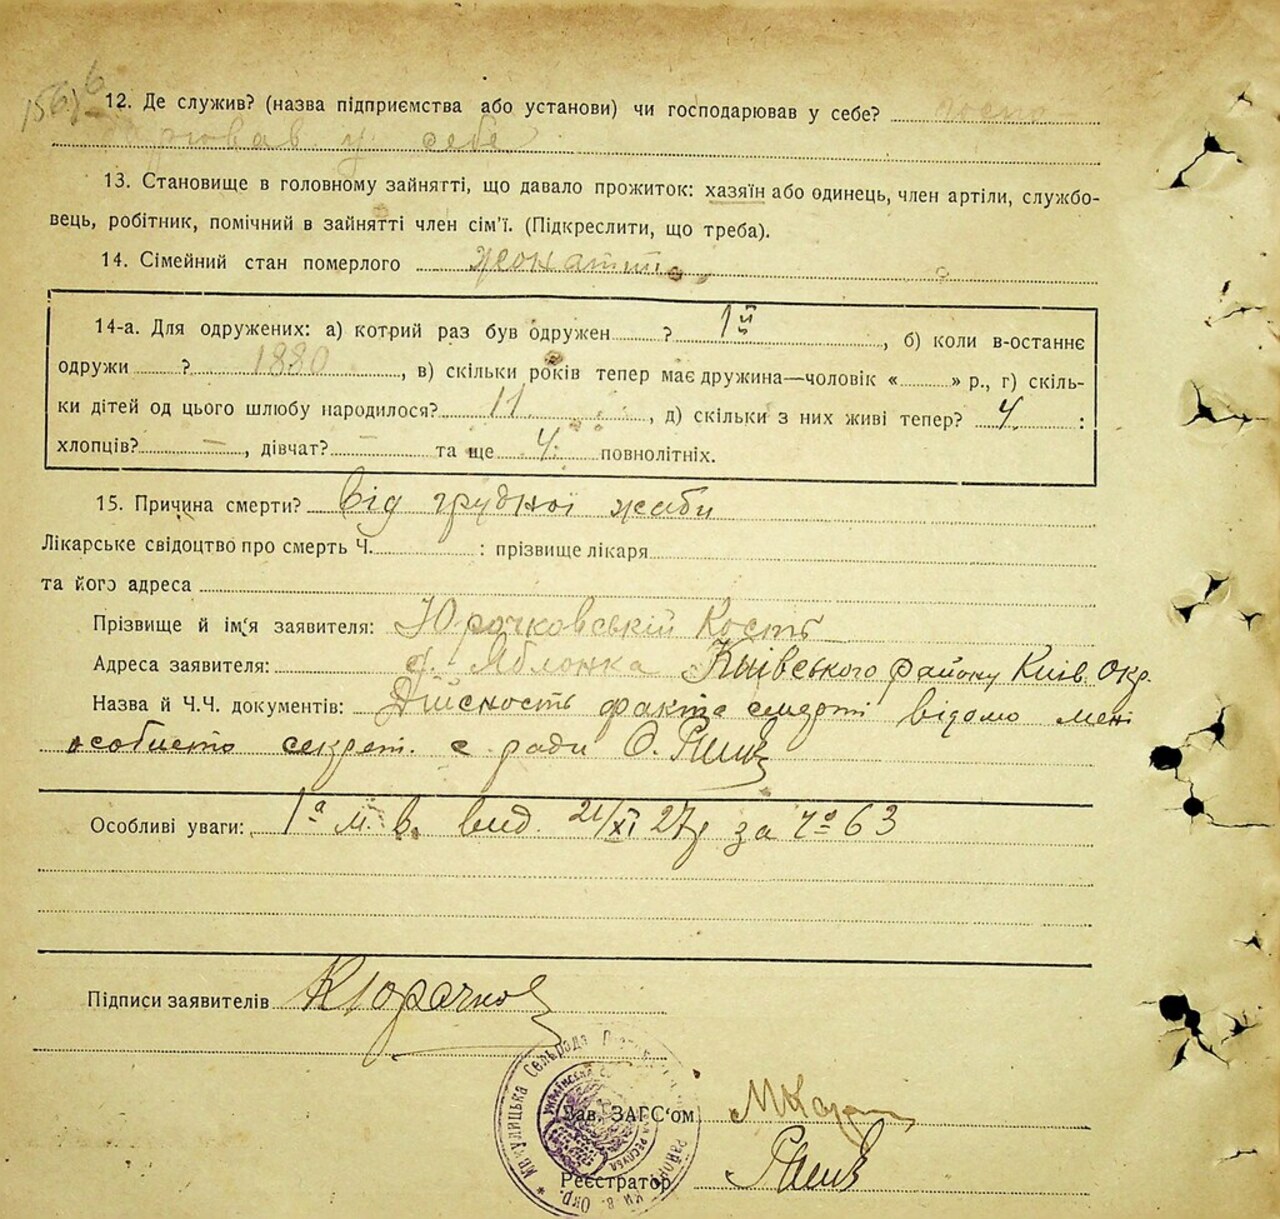 12. Де служив? (назва підприємства або установи) чи господарював у себе? госпо-
дарював у себе
13. Становище в головному зайнятті, що давало прожиток: хазяїн або одинець, член артіли, службо-
вець, робітник, помічний в зайнятті член сім'ї. (Підкреслити, що треба).
14. Сімейний стан померлого жонатий
14-а. Для одружених: а) котрий раз був одружен ? 1й, б) коли в-останнє
одружи ? 1880, в) скільки років тепер має дружина—чоловік « » р., г) скіль-
ки дітей од цього шлюбу народилося? 11, д) скільки з них живі тепер? 4 :
хлопців? —, дівчат? — та ще 4 повнолітніх.
15. Причина смерти? Від грудної жаби
Лікарське свідоцтво про смерть Ч. : прізвище лікаря
та його адреса
Прізвище й ім'я заявителя: Юрочковській Кость
Адреса заявителя: с. Яблонка Київського району Київ. Окр.
Назва й Ч.Ч. документів: Дійсность факта смерти відомо мені
особисто секрет. с ради О.
Особливі уваги: 1а м. в. вид. 21/XI 27р за чо 63
Підписи заявителів
Зав. ЗАГС'ом
Реєстратор
Сельрада